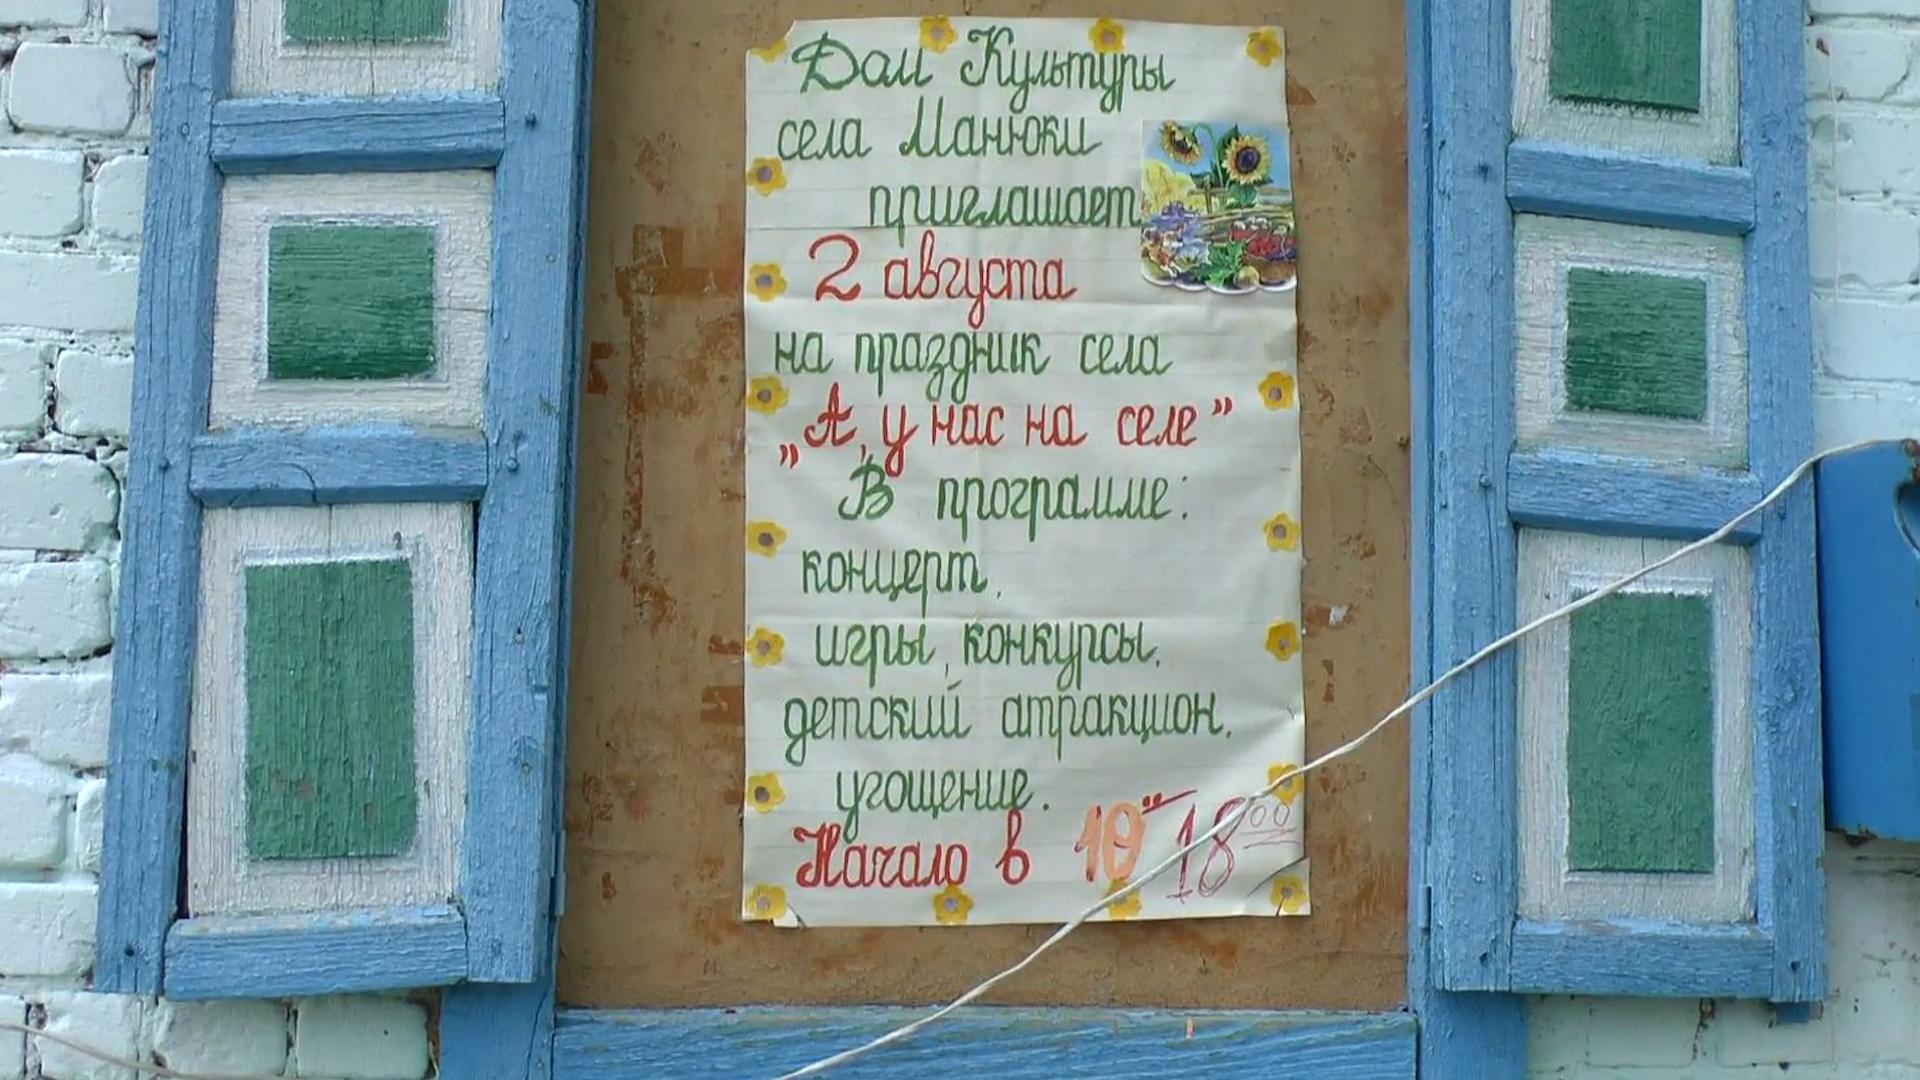 Дом Культуры
села Манюки
приглашает
2 августа
на праздник села
„А у нас на селе”
В программе:
концерт,
игры, конкурсы,
детский атракцион,
угощение.
Начало в 10⁰⁰ 18⁰⁰